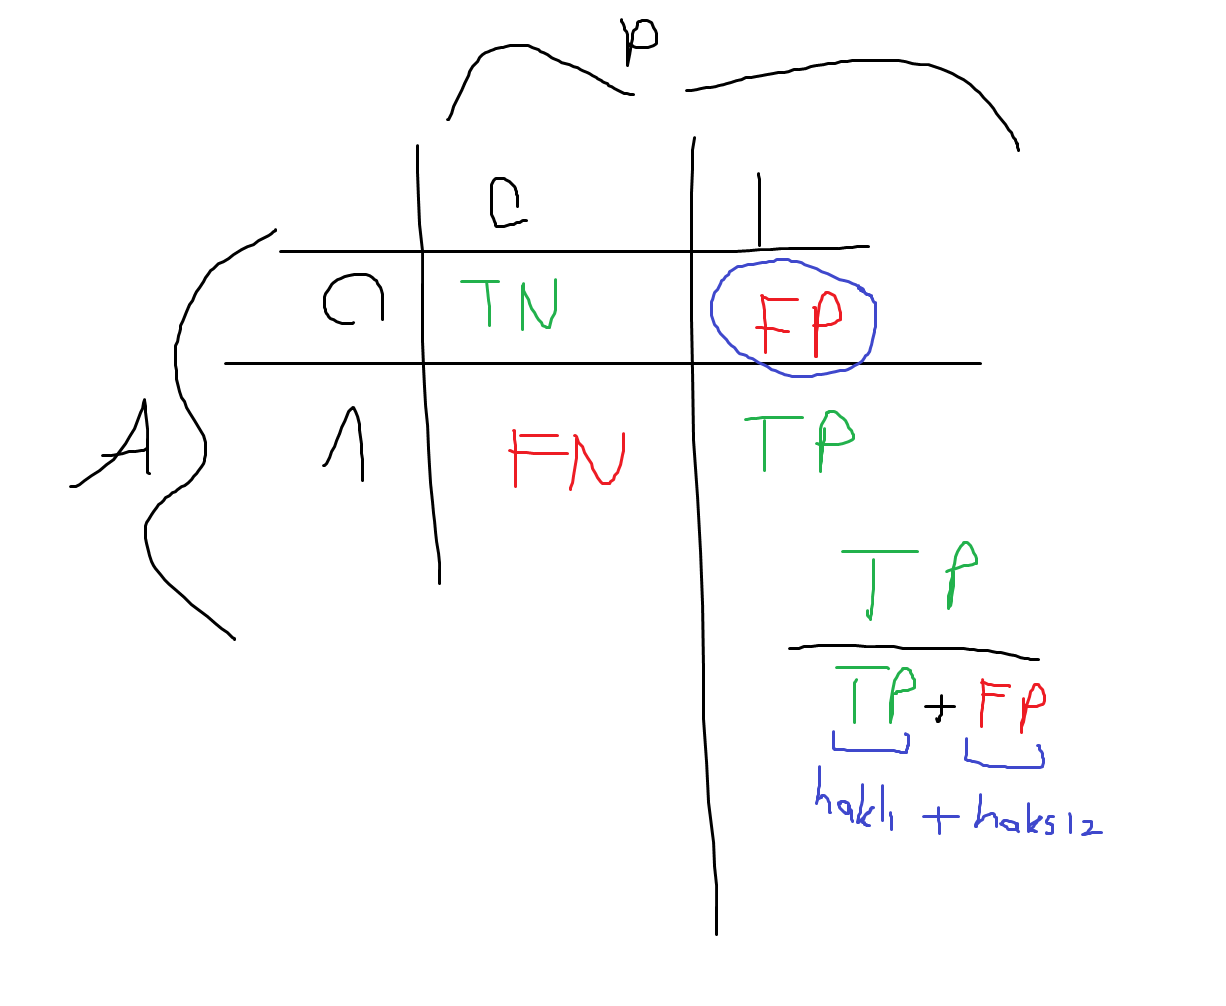 P
0 1
0 TN FP
A
1 FN TP
TP
TP + FP
haklı + haksız